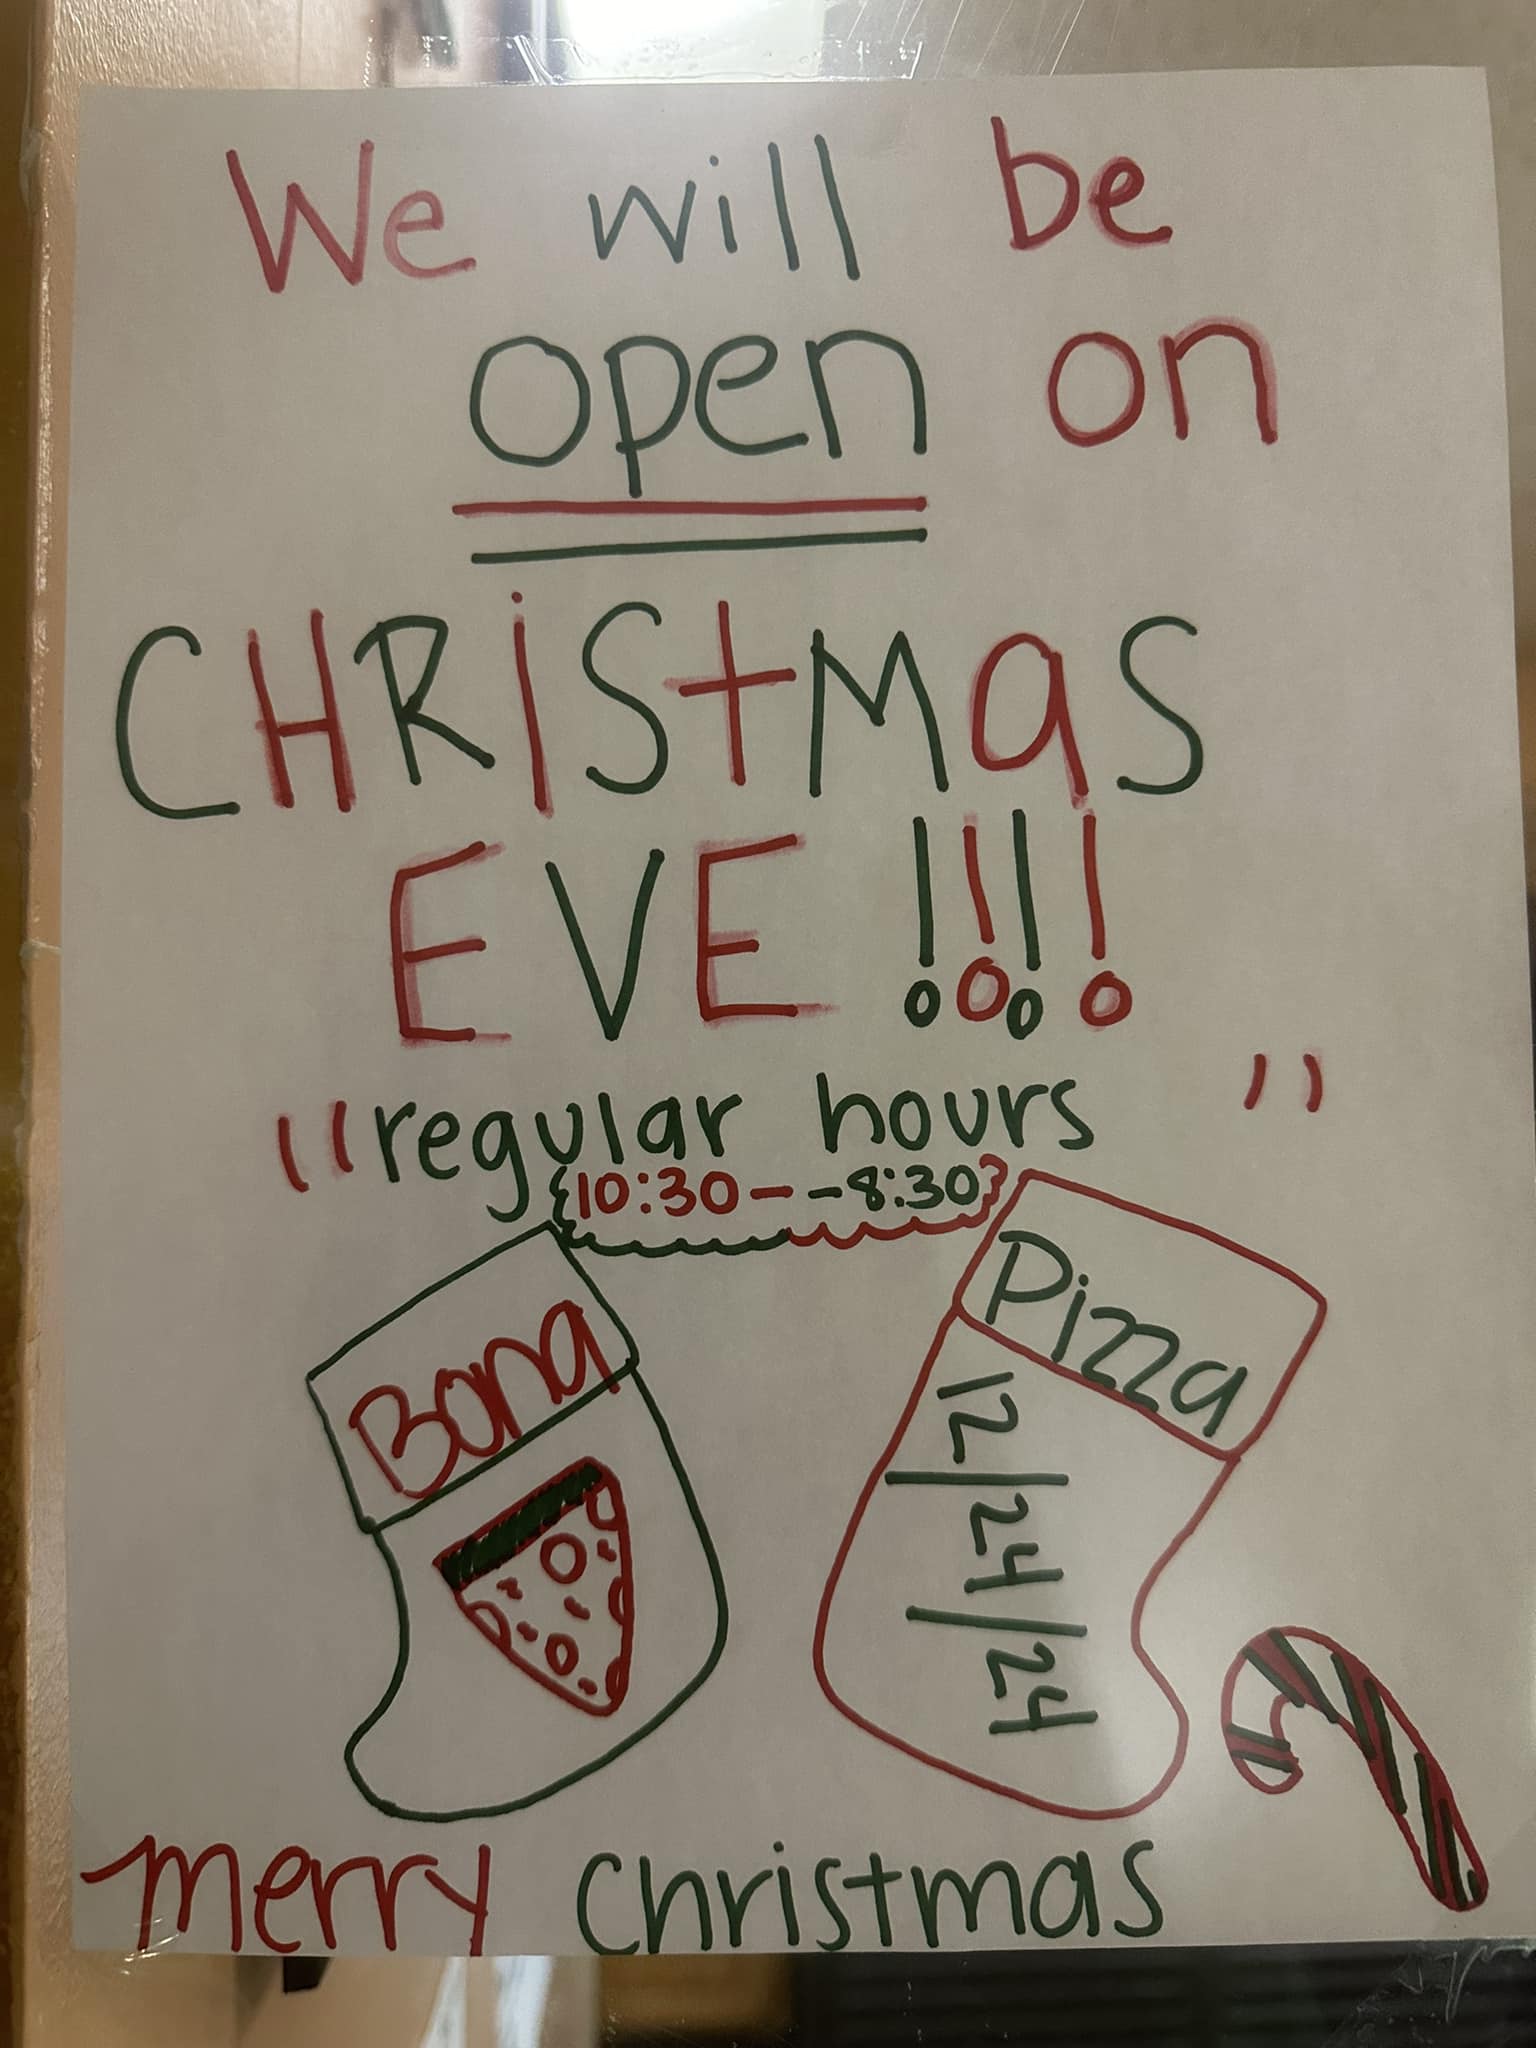 We will be
open on
CHRiStMaS
EVE !!!!
"regular hours"
10:30--8:30
Bona
Pizza
12/24/24
merry christmas